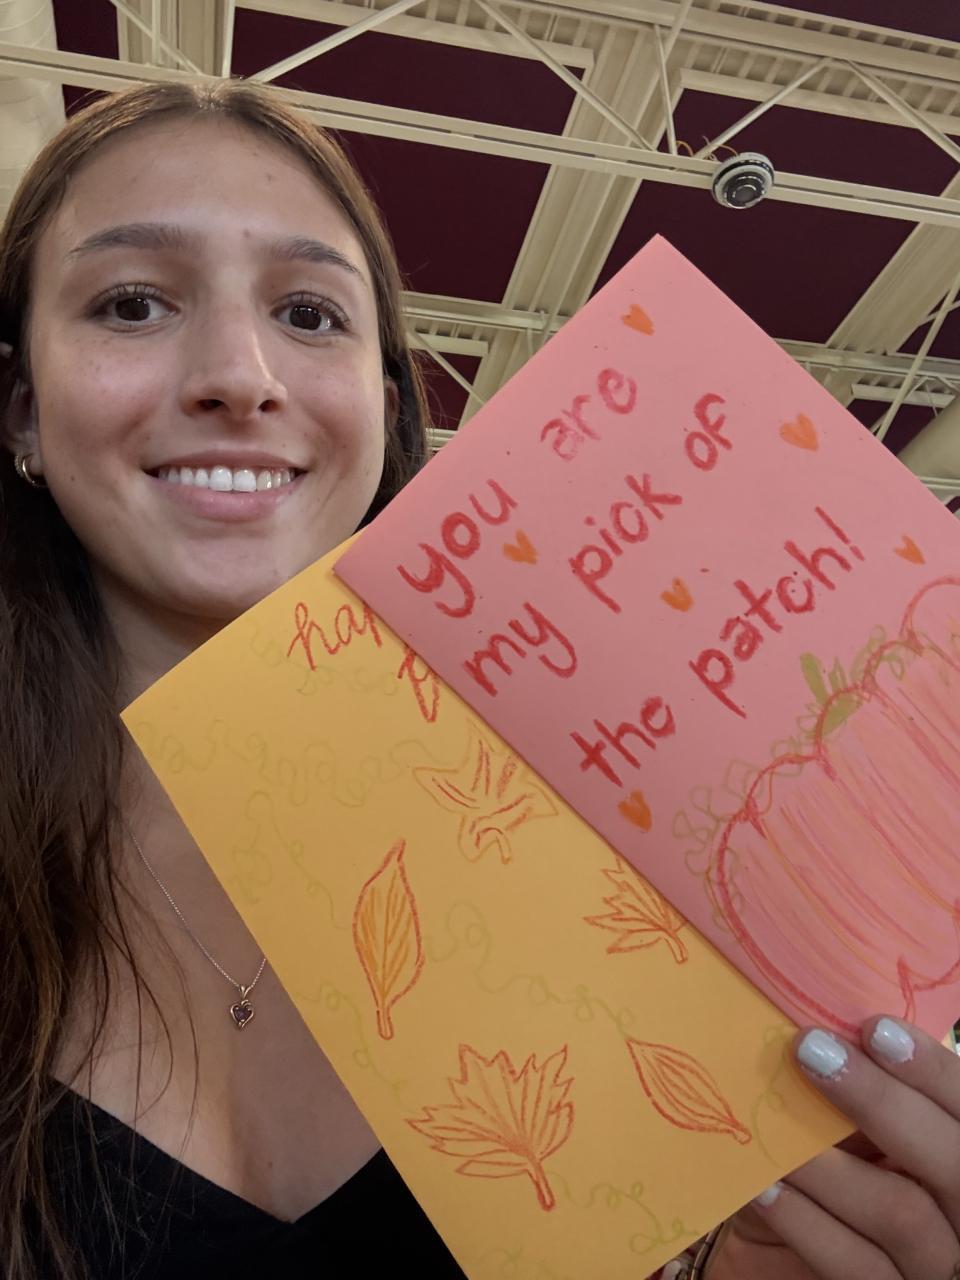 you are
my pick of
the patch!